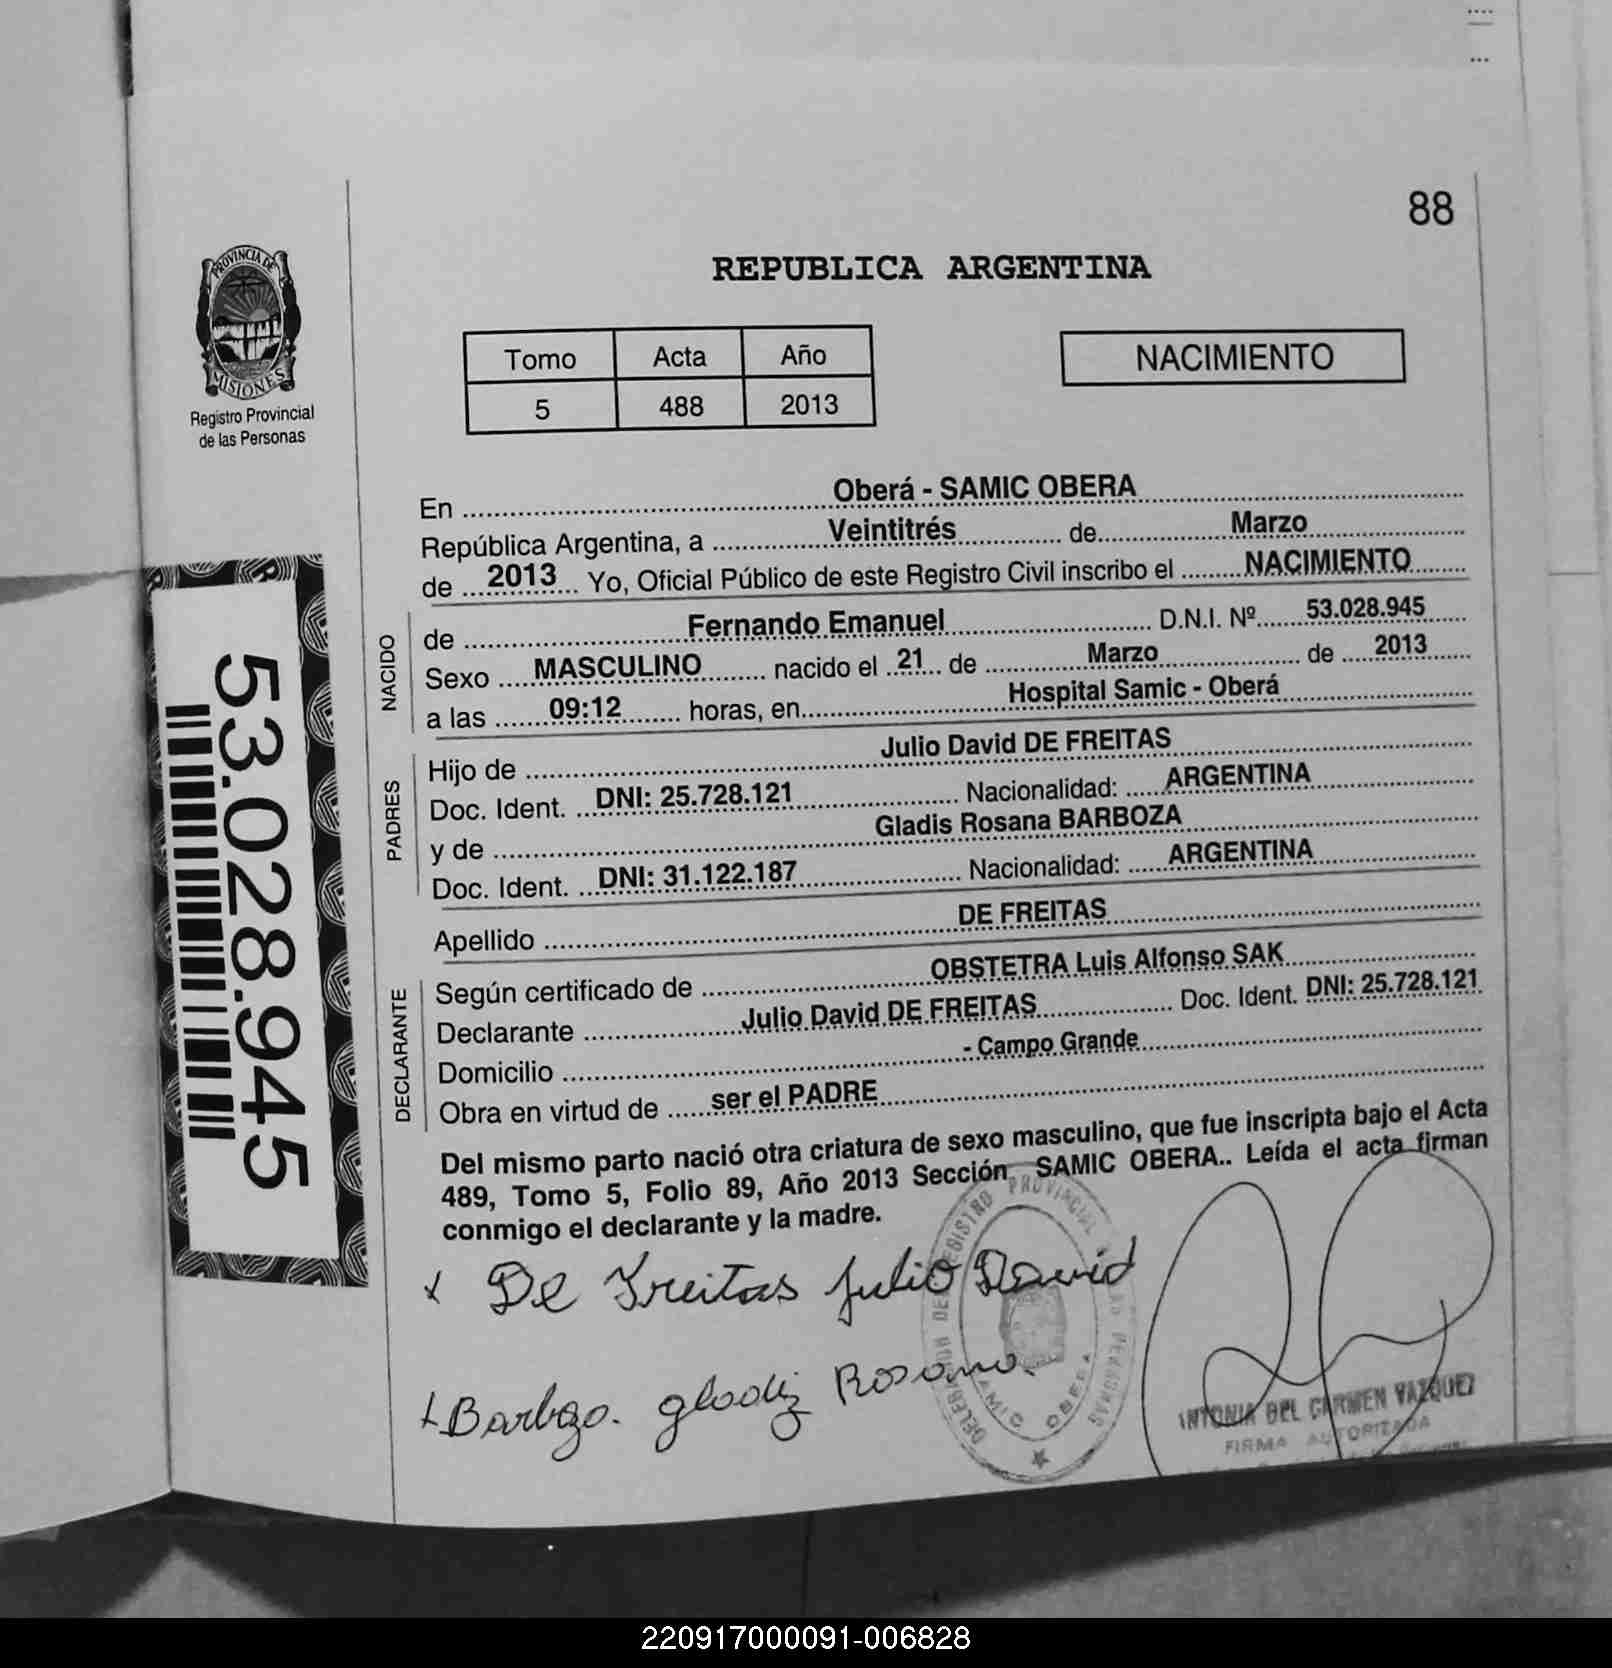 88
PROVINCIA DE
MISIONES
Registro Provincial
de las Personas
REPUBLICA ARGENTINA
Tomo Acta Año
5 488 2013
NACIMIENTO
En Oberá - SAMIC OBERA
República Argentina, a Veintitrés de Marzo
de 2013 Yo, Oficial Público de este Registro Civil inscribo el NACIMIENTO
NACIDO
de Fernando Emanuel D.N.I. Nº 53.028.945
Sexo MASCULINO nacido el 21 de Marzo de 2013
a las 09:12 horas, en Hospital Samic - Oberá
PADRES
Hijo de Julio David DE FREITAS
Doc. Ident. DNI: 25.728.121 Nacionalidad: ARGENTINA
y de Gladis Rosana BARBOZA
Doc. Ident. DNI: 31.122.187 Nacionalidad: ARGENTINA
Apellido DE FREITAS
DECLARANTE
Según certificado de OBSTETRA Luis Alfonso SAK
Declarante Julio David DE FREITAS Doc. Ident. DNI: 25.728.121
Domicilio - Campo Grande
Obra en virtud de ser el PADRE
Del mismo parto nació otra criatura de sexo masculino, que fue inscripta bajo el Acta
489, Tomo 5, Folio 89, Año 2013 Sección SAMIC OBERA.. Leída el acta firman
conmigo el declarante y la madre.
53.028.945
De Freitas Julio David
Gladiz Rosana
REGISTRO PROVINCIAL DE LAS PERSONAS
SAMIC OBERA
ANTONIA DEL CARMEN VAZQUEZ
FIRMA AUTORIZADA
220917000091-006828